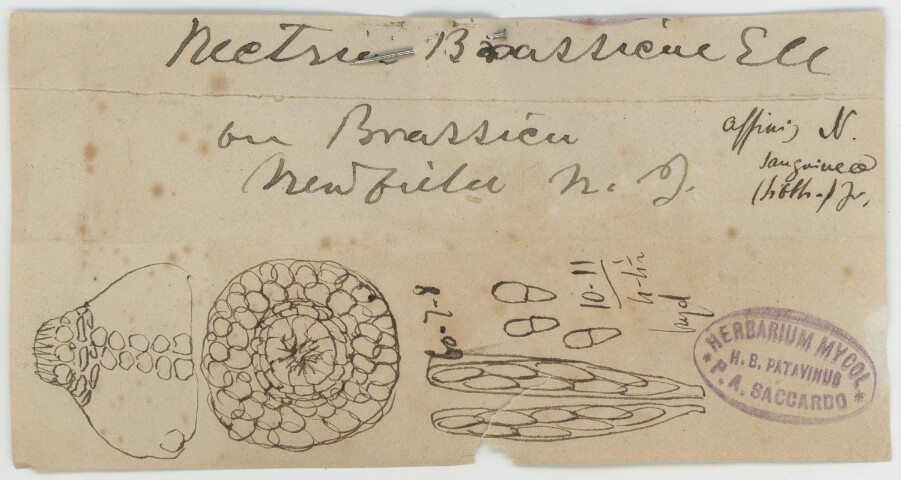 Nectria Brassicae Ell
on Brassica
Newfield N. J.
affinis N.
sanguinea
(Sibth.) Fr.
60-7-8
10-11
4-4½
hyal
HERBARIUM MYCOL.
H. B. PATAVINUS
* P. A. SACCARDO *